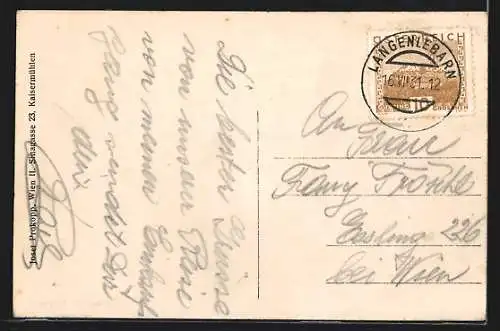 Josef Prokopp, Wien II. Sinagasse 23, Kaisermühlen
Die besten Grüsse
von unserer Reise
von meinem
ganze sendet Dir
ÖSTERREICH
LANGENLEBARN
16.VII.31. 12
10
An Frau
Fanny Fröschl
Essling 226
bei Wien